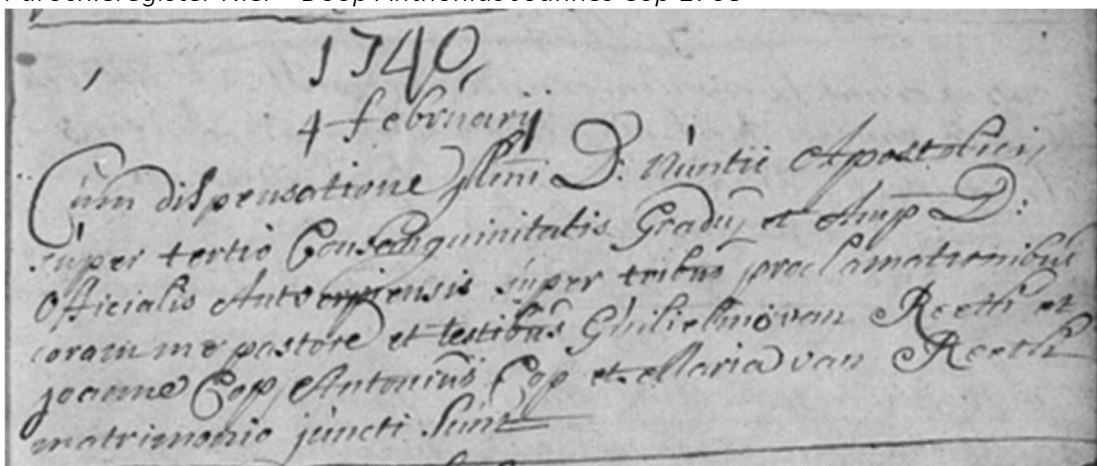 1740,
4 februarij
Cum dispensatione Illmi D: Nuntii Apostolici,
super tertio Consanguinitatis Gradu, et Amp D:
Officialis Antverpiensis super tribus proclamationibus
coram me pastore et testibus Guilielmo van Reeth et
joanne Cop, Antonius Cop et Maria van Reeth
matrimonio juncti sunt